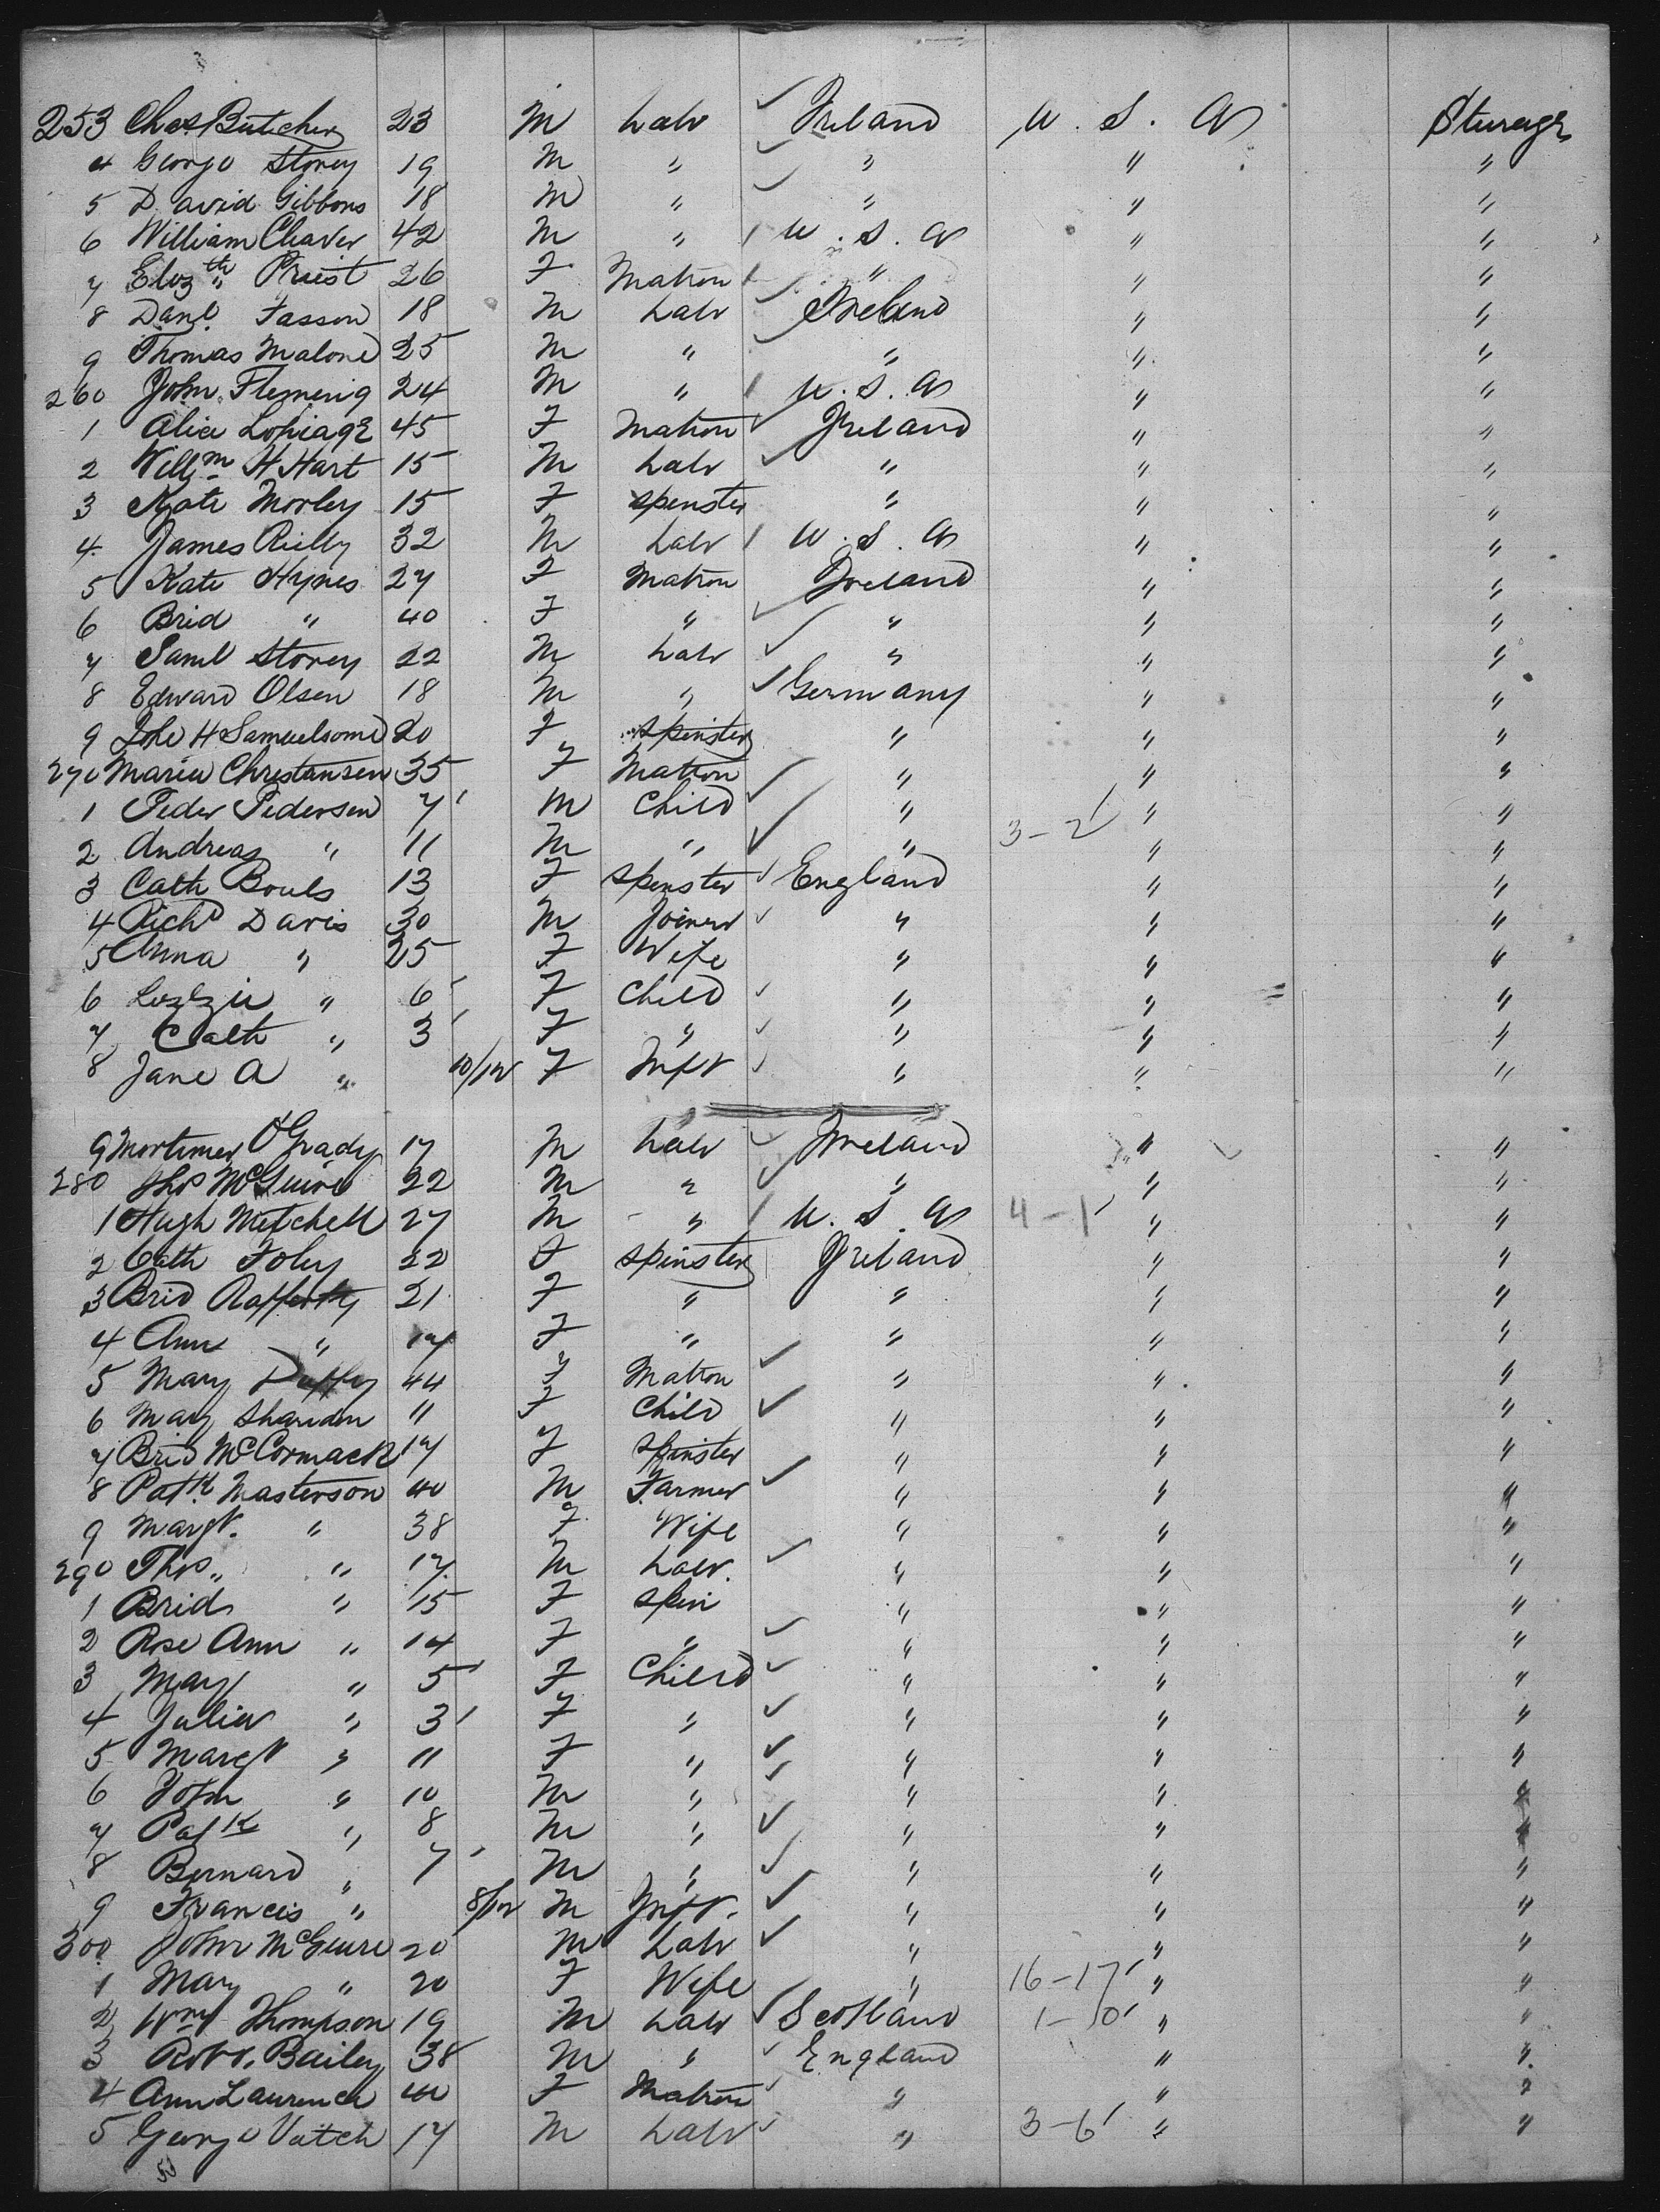 253 Chas Butcher 23 M Labr Ireland U.S.A Steerage
4 George Storey 19 M " " " "
5 David Gibbons 18 M " " " "
6 William Cleaver 42 M " U.S.A " "
7 Eliz th Priest 26 F Matron " " "
8 Danl. Fasson 18 M Labr Ireland " "
9 Thomas Malone 25 M " " " "
260 John Fleming 24 M " U.S.A " "
1 Alice 45 F Matron Ireland " "
2 Willm H Hart 15 M Labr " " "
3 Kate Morley 15 F Spinster " " "
4 James Rielly 32 M Labr U.S.A " "
5 Kate Hynes 27 F Matron Ireland " "
6 Brid " 40 F " " " "
7 Saml Storey 22 M Labr " " "
8 Edward Olsen 18 M " Germany " "
9 H Samuelsome 20 F Spinster " " "
270 Maria Christansen 35 F Matron " " "
1 Peder Pedersen 7 M Child " " "
2 Andreas " 11 M " " 3-2 " "
3 Cath Bouls 13 F Spinster England " "
4 Richd Davis 30 M Joiner " " "
5 Anna " 25 F Wife " " "
6 Lizzie " 6 F Child " " "
7 Cath " 3 F " " " "
8 Jane A " 10/12 F Inft " " "
9 Mortimer O'Grady 17 M Labr Ireland " "
280 Thos McGuire 22 M " " " "
1 Hugh Mitchell 27 M " U.S.A 4-1 " "
2 Cath Foley 22 F Spinster Ireland " "
3 Brid Rafferty 21 F " " " "
4 Ann " 17 F " " " "
5 Mary Duffy 44 F Matron " " "
6 Mary Sharidan 11 F Child " " "
7 Brid McCormack 17 F Spinster " " "
8 Patk. Masterson 40 M Farmer " " "
9 Margt. " 38 F Wife " " "
290 Thos " 17 M Labr. " " "
1 Brid " 15 F Spin " " "
2 Rose Ann " 14 F " " " "
3 Mary " 5 F Child " " "
4 Julia " 3 F " " " "
5 Margt " 11 F " " " "
6 John " 10 M " " " "
7 Patk " 8 M " " " "
8 Bernard " 7 M " " " "
9 Francis " 8/12 M Inft. " " "
300 John McGuire 20 M Labr " " "
1 Mary " 20 F Wife " 16-17 " "
2 Wm Thompson 19 M Labr Scotland 1-0 " "
3 Robt. Bailey 38 M " England " "
4 Ann Laurence 40 F Matron " " "
5 George Vatch 17 M Labr " 3-6 " "